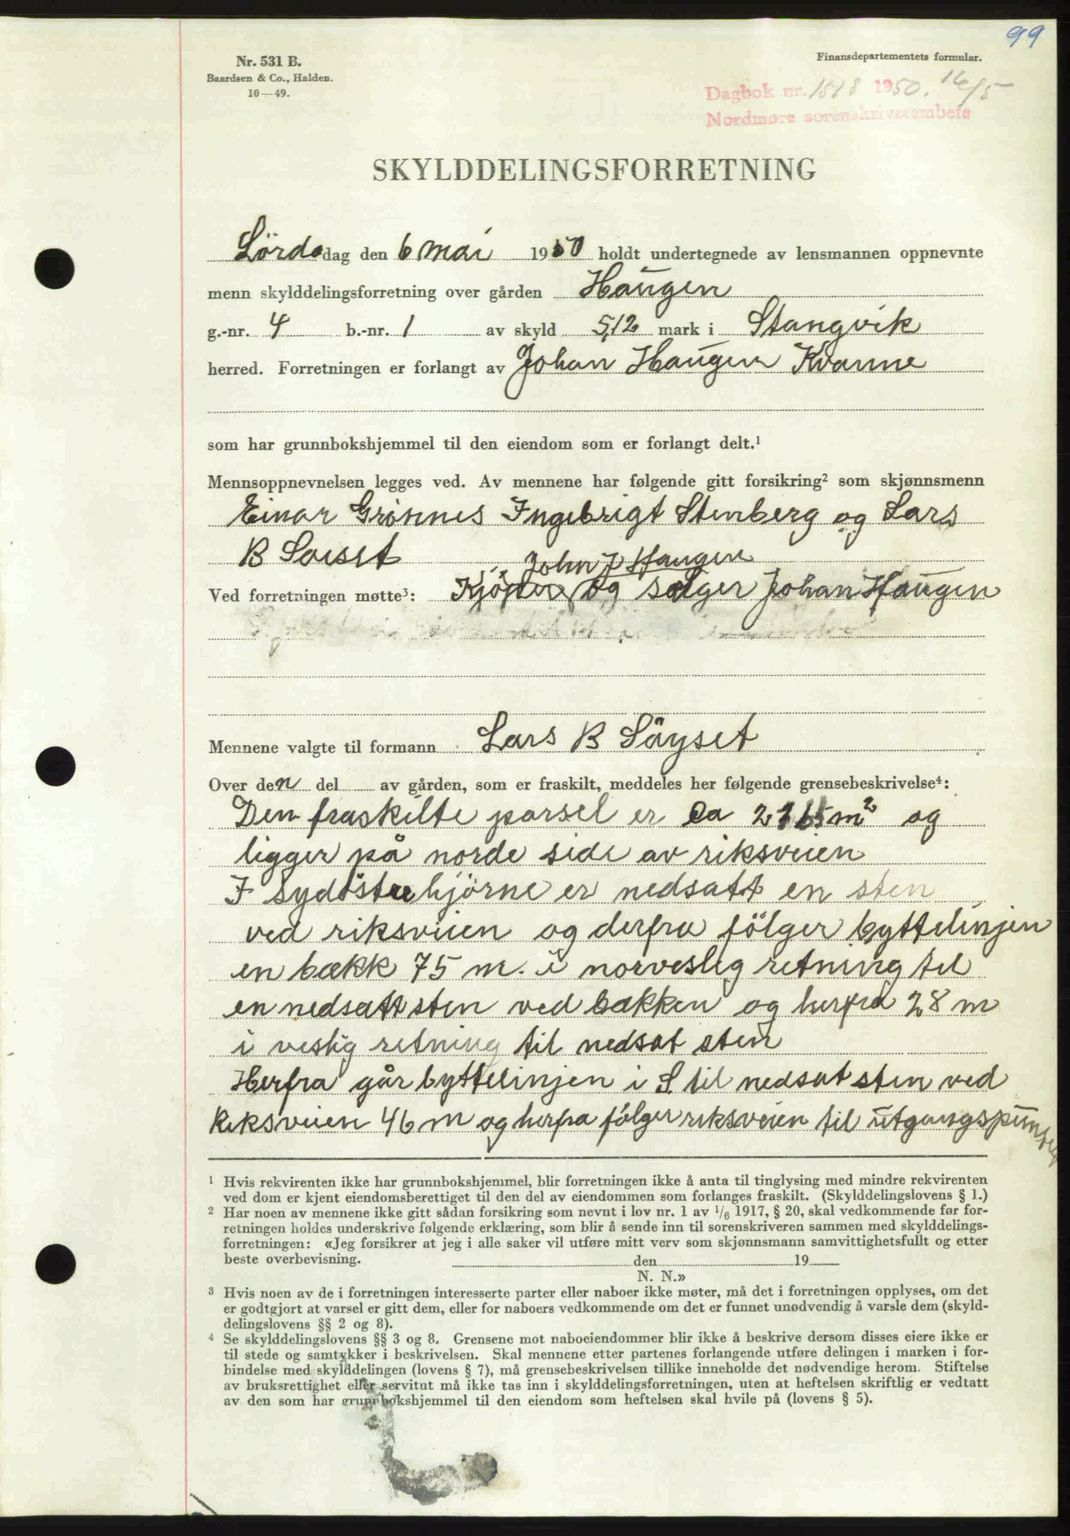 99
Nr. 531 B.
Baardsen & Co., Halden.
10—49.
Finansdepartementets formular.
Dagbok nr. 1518 1950. 16/5
Nordmøre sorenskriverembete
SKYLDDELINGSFORRETNING
Lördsdag den 6 mai 1950 holdt undertegnede av lensmannen oppnevnte
menn skylddelingsforretning over gården Haugen
g.-nr. 4 b.-nr. 1 av skyld 5,12 mark i Stangvik
herred. Forretningen er forlangt av Johan Haugen Kvanne
som har grunnbokshjemmel til den eiendom som er forlangt delt.¹
Mennsoppnevnelsen legges ved. Av mennene har følgende gitt forsikring² som skjønnsmenn
Einar Grönnes Ingebrigt Stenberg og Lars
B Søiset
John J Haugen
Ved forretningen møtte³: Kjöper og selger Johan Haugen
Mennene valgte til formann Lars B Söyset
Over den del av gården, som er fraskilt, meddeles her følgende grensebeskrivelse⁴:
Den fraskilte parsel er ca m² og
ligger på norde side av riksveien
I sydöstre hjörne er nedsatt en sten
ved riksveien og derfra fölger byttelinjen
en bækk 75 m. i norveslig retning til
en nedsatt sten ved bækken og herfra 28 m
i veslig retning til nedsat sten
Herfra går byttelinjen i S til nedsat sten ved
Riksveien 46 m og herfra fölger riksveien til utgangspunktet
¹ Hvis rekvirenten ikke har grunnbokshjemmel, blir forretningen ikke å anta til tinglysing med mindre rekvirenten
ved dom er kjent eiendomsberettiget til den del av eiendommen som forlanges fraskilt. (Skylddelingslovens § 1.)
² Har noen av mennene ikke gitt sådan forsikring som nevnt i lov nr. 1 av 1/6 1917, § 20, skal vedkommende før for-
retningen holdes underskrive følgende erklæring, som blir å sende inn til sorenskriveren sammen med skylddelings-
forretningen: «Jeg forsikrer at jeg i alle saker vil utføre mitt verv som skjønnsmann samvittighetsfullt og etter
beste overbevisning. den 19
N. N.»
³ Hvis noen av de i forretningen interesserte parter eller naboer ikke møter, må det i forretningen opplyses, om det
er godtgjort at varsel er gitt dem, eller for naboers vedkommende om det er funnet unødvendig å varsle dem (skyld-
delingslovens §§ 2 og 8).
⁴ Se skylddelingslovens §§ 3 og 8. Grensene mot naboeiendommer blir ikke å beskrive dersom disses eiere ikke er
til stede og samtykker i beskrivelsen. Skal mennene etter partenes forlangende utføre delingen i marken i for-
bindelse med skylddelingen (lovens § 7), må grensebeskrivelsen tillike inneholde det nødvendige herom. Stiftelse
av bruksrettighet eller servitut må ikke tas inn i skylddelingsforretningen, uten at heftelsen skriftlig er vedtatt
av den som har grunnbokshjemmel til den eiendom som heftelsen skal hvile på (lovens § 5).